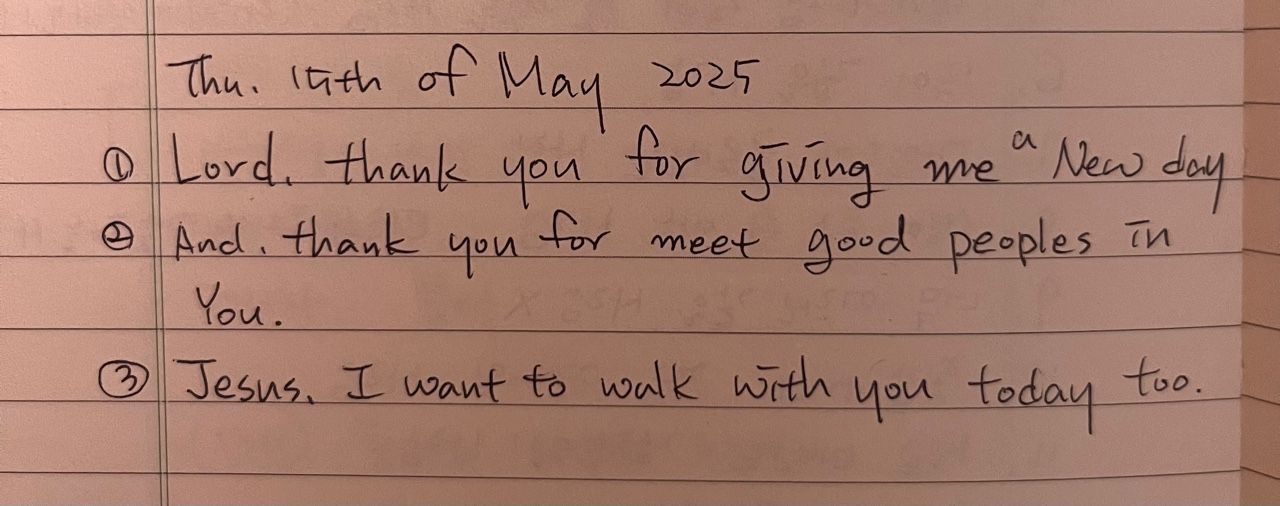 Thu. 15th of May 2025
① Lord, thank you for giving me a New day
② And, thank you for meet good peoples in
You.
③ Jesus, I want to walk with you today too.